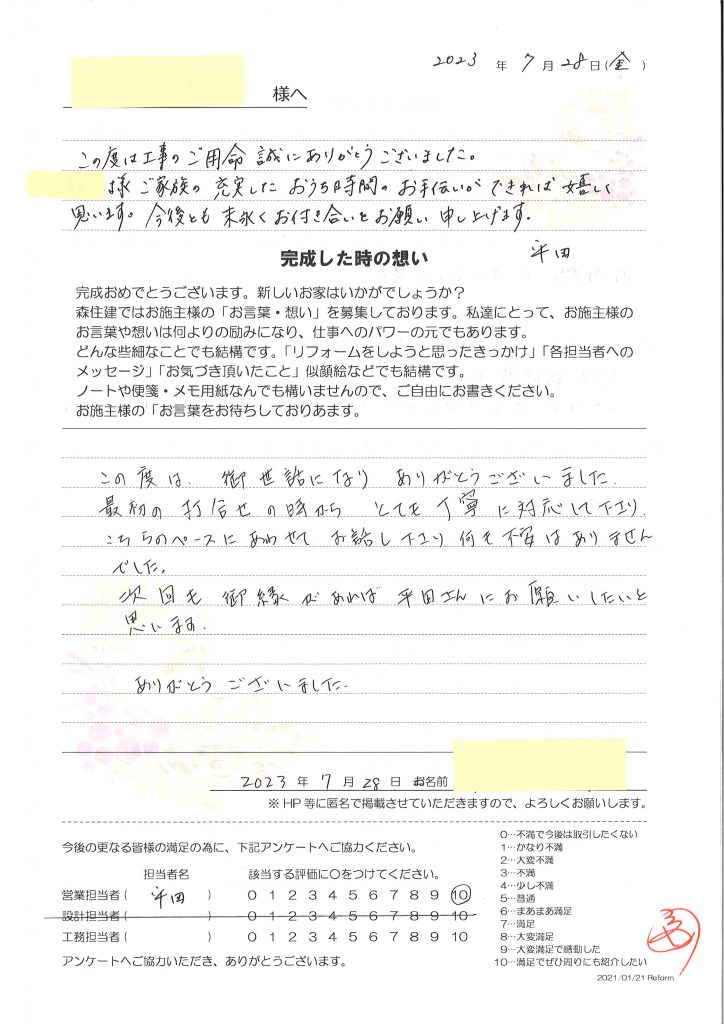 2023 年 7 月 28 日(金)
様へ
この度は工事のご用命 誠にありがとうございました。
様 ご家族の 充実した おうち時間の お手伝いが できれば 嬉しく
思います。今後とも 末永く お付き合いを お願い 申し上げます。
平田
完成した時の想い
完成おめでとうございます。新しいお家はいかがでしょうか?
森住建ではお施主様の「お言葉・想い」を募集しております。私達にとって、お施主様の
お言葉や想いは何よりの励みになり、仕事へのパワーの元でもあります。
どんな些細なことでも結構です。「リフォームをしようと思ったきっかけ」「各担当者への
メッセージ」「お気づき頂いたこと」似顔絵などでも結構です。
ノートや便箋・メモ用紙なんでも構いませんので、ご自由にお書きください。
お施主様の「お言葉をお待ちしておりあます。
この度は、御世話になり ありがとうございました.
最初の 打合せの時から とても 丁寧に 対応して下さり.
こちらのペースに あわせて お話し下さり 何も 不安は ありません
でした.
次回も 御縁が あれば 平田さんに お願いしたいと
思います.
ありがとう ございました.
2023 年 7 月 28 日 お名前
※ HP 等に匿名で掲載させていただきますので、よろしくお願いします。
今後の更なる皆様の満足の為に、下記アンケートへご協力ください。
担当者名 該当する評価に○をつけてください。
営業担当者( 平田 ) 0 1 2 3 4 5 6 7 8 9 10
設計担当者( ) 0 1 2 3 4 5 6 7 8 9 10
工務担当者( ) 0 1 2 3 4 5 6 7 8 9 10
アンケートへご協力いただき、ありがとうございます。
0…不満で今後は取引したくない
1…かなり不満
2…大変不満
3…不満
4…少し不満
5…普通
6…まあまあ満足
7…満足
8…大変満足
9…大変満足で感動した
10…満足でぜひ周りにも紹介したい
2021/01/21 Reform